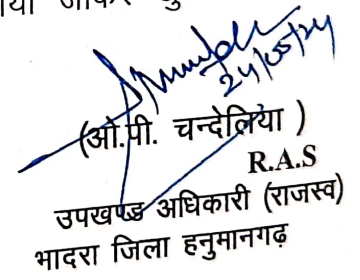 जाकर
24/05/24
(ओ.पी. चन्देलिया )
R.A.S
उपखण्ड अधिकारी (राजस्व)
भादरा जिला हनुमानगढ़